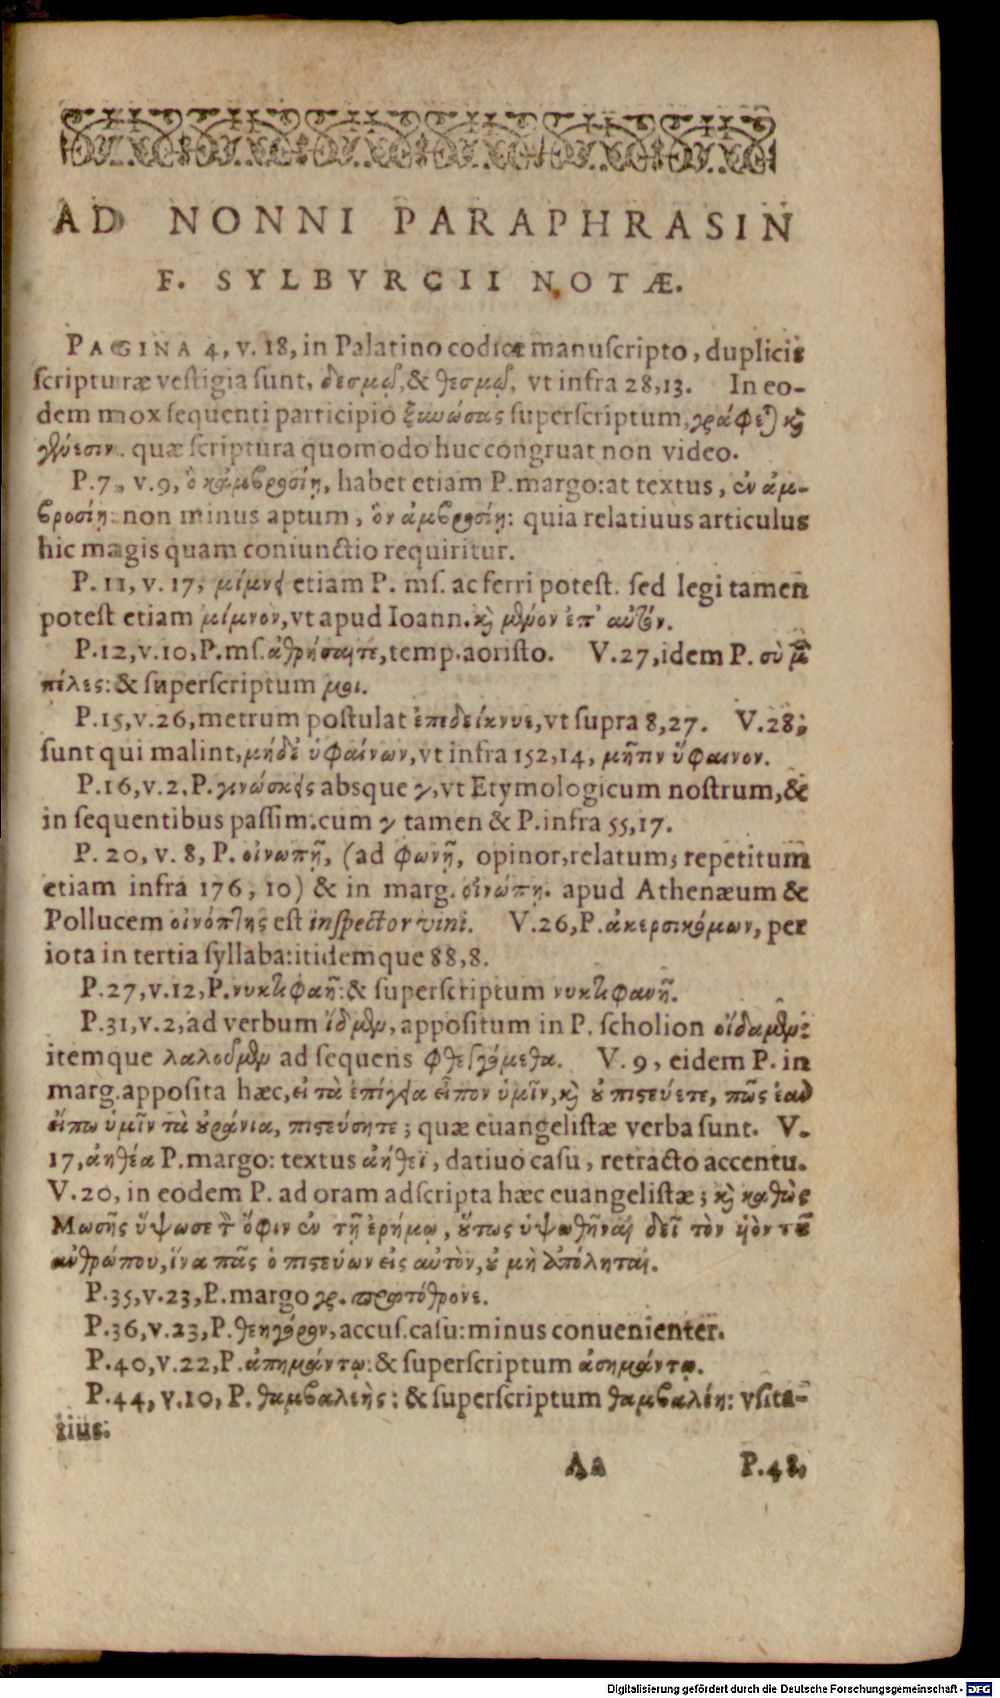 AD NONNI PARAPHRASIN
F. SYLBVRGII NOTÆ.
PAGINA 4, v. 18, in Palatino codice manuſcripto, duplicis
ſcripturæ veſtigia ſunt, δεσμῷ, & θεσμῷ, vt infra 28, 13. In eo-
dem mox ſequenti participio ξυνώσας ſuperſcriptum, γράφεται καὶ
quæ ſcriptura quomodo huc congruat non video.
P. 7, v. 9, ὃ κἀμβροσίῃ, habet etiam P. margo: at textus, ἐν ἀμ-
βροσίῃ: non minus aptum, ὃν ἀμβροσίῃ: quia relatiuus articulus
hic magis quam coniunctio requiritur.
P. 11, v. 17, μίμνει etiam P. mſ. ac ferri poteſt. ſed legi tamen
poteſt etiam μίμνον, vt apud Ioann. καὶ μένον ἐπ' αὐτόν.
P. 12, v. 10, P. mſ. ἀθρήσατε, temp. aoriſto. V. 27, idem P. σὺ μὲν
πέλες: & ſuperſcriptum μοι.
P. 15, v. 26, metrum poſtulat ἐπιδείκνυε, vt ſupra 8, 27. V. 28,
ſunt qui malint, μήδε' ὑφαίνων, vt infra 152, 14, μῆτιν ὕφαινον.
P. 16, v. 2, P. γινώσκεις absque γ, vt Etymologicum noſtrum, &
in ſequentibus paſſim. cum γ tamen & P. infra 55, 17.
P. 20, v. 8, P. οἰνωπῇ, (ad φωνῇ, opinor, relatum; repetitum
etiam infra 176, 10) & in marg. οἰνώπη. apud Athenæum &
Pollucem οἰνόπτης est inſpector vini. V. 26, P. ἀκερσικόμων, per
iota in tertia ſyllaba: itidemque 88, 8.
P. 27, v. 12, P. νυκτιφαῆ: & ſuperſcriptum νυκτιφανῆ.
P. 31, v. 2, ad verbum ἴδμεν, appoſitum in P. ſcholion οἴδαμεν:
itemque λαλοῦμεν ad ſequens φθεγγόμεθα. V. 9, eidem P. in
marg. appoſita hæc, εἰ τὰ ἐπίγεια εἶπον ὑμῖν, καὶ οὐ πιστεύετε, πῶς ἐὰν
εἴπω ὑμῖν τὰ οὐράνια, πιστεύσητε; quæ euangeliſtæ verba ſunt. V.
17, ἀηθέα P. margo: textus ἀήθεϊ, datiuo caſu, retracto accentu.
V. 20, in eodem P. ad oram adſcripta hæc euangeliſtæ; καὶ καθὼς
Μωσῆς ὕψωσε τὸν ὄφιν ἐν τῇ ἐρήμῳ, οὕτως ὑψωθῆναι δεῖ τὸν υἱὸν τοῦ
ἀνθρώπου, ἵνα πᾶς ὁ πιστεύων εἰς αὐτὸν, οὐ μὴ ἀπόληται.
P. 35, v. 23, P. margo γρ. πρωτόθρονε.
P. 36, v. 23, P. θεηγόρον, accuſ. caſu: minus conuenienter.
P. 40, v. 22, P. ἀπημάντῳ: & ſuperſcriptum ἀσημάντῳ.
P. 44, v. 10, P. θαμβαλεὴς: & ſuperſcriptum θαμβαλέη: vſita-
tius.
Aa P. 48,
Digitalisierung gefördert durch die Deutsche Forschungsgemeinschaft - DFG